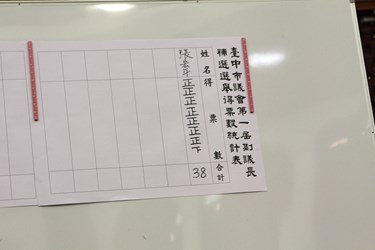 臺中市議會第一屆副議長
補選選舉得票數統計表
姓名 得票數 合計
張宏年 正正正正正正正下 38